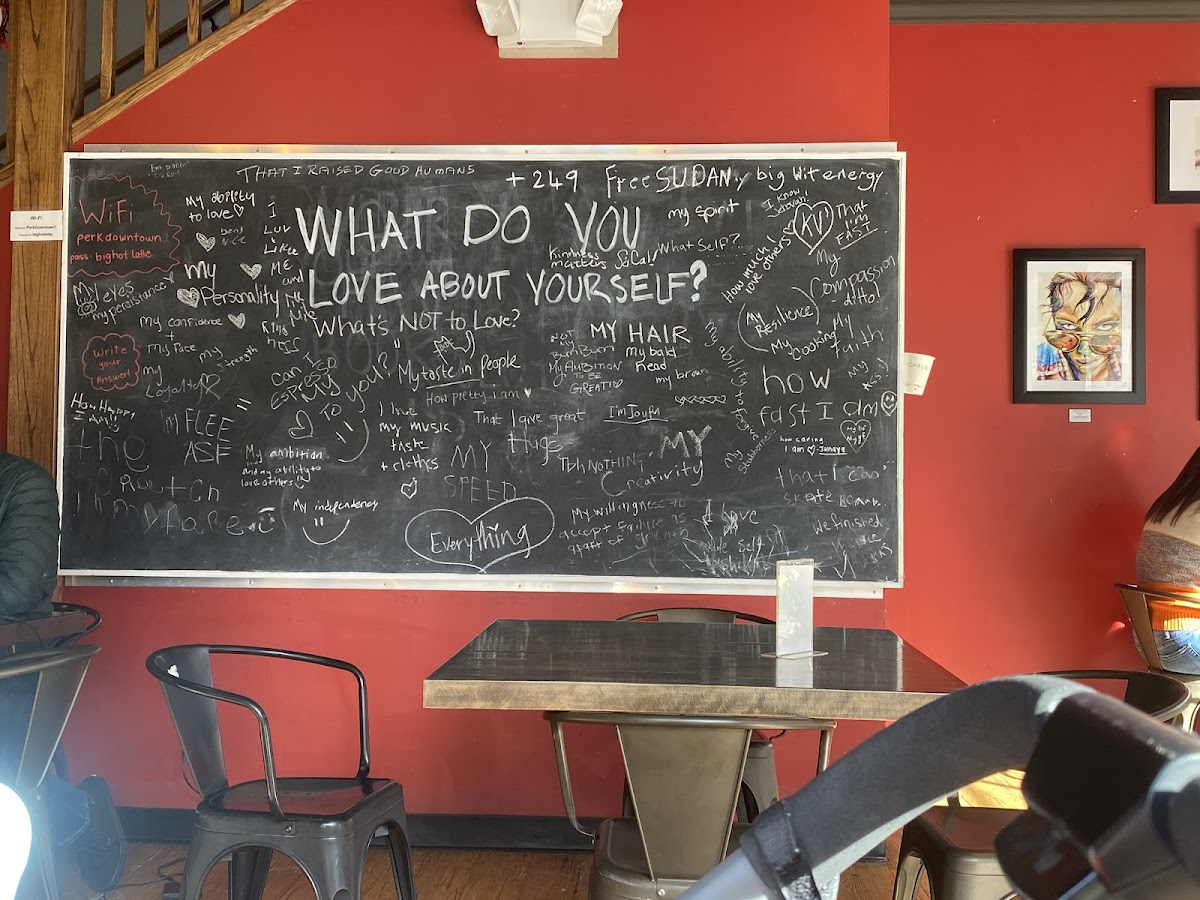 THAT I RAISED GOOD HUMANS
+249
Free SUDAN
big Wit energy
WiFi
perkdowntown
pass: bighot latte
WI-FI
My ability
to love
I
Luv
ME
and
WHAT DO YOU
LOVE ABOUT YOURSELF?
my spirit
I know,
What Self?
KV
That
I'm
FAST
Kindness
matters
SoCal
How much I
love others
My
Compassion
-ditto!
My eyes
my persistance
my
Personality
My confidence
+
This Face
my
Strength
Write
your
Answer!
my
Loyalty
What's NOT to Love?
=
My taste in people
How pretty I am
MY HAIR
my bald
head
my brown
My AMBITION
TO BE
GREAT
My
Resilience
My
Cooking
My
faith
My
ASS!
how
fast I am
How Happy
I Am!!
can I go
ESPRESSO
My you?
TO
FLEE
ASF
My ambition
and my ability to
love others
I love
my music
taste
+ clothes
That I give great
Hugs
I'm Joyful
MY
SPEED
Tbh NOTHING
MY
Creativity
My
Stubbornness
how caring
I am
that I can
skate
My independence
Everything
My willingness to
accept failure as
a part of growth
I love
We finished